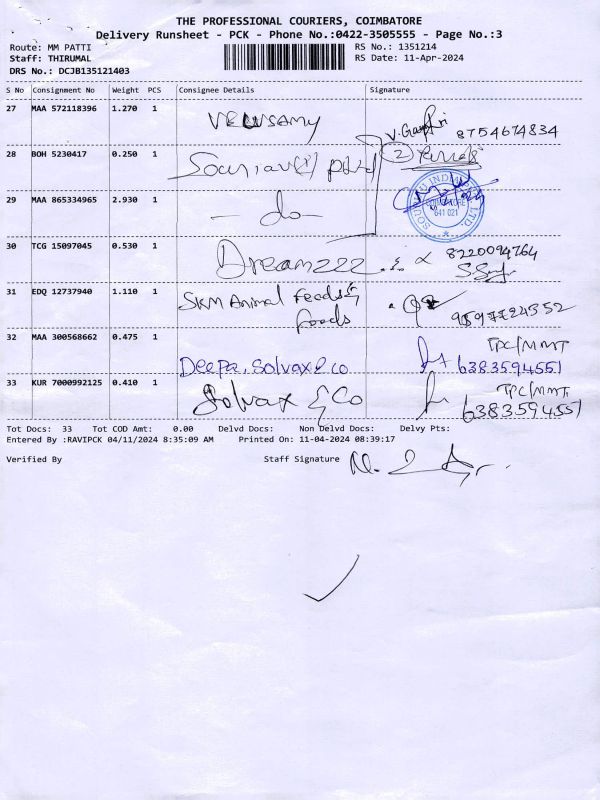 THE PROFESSIONAL COURIERS, COIMBATORE
Delivery Runsheet - PCK - Phone No.:0422-3505555 - Page No.:3
Route: MM PATTI
RS No.: 1351214
Staff: THIRUMAL
RS Date: 11-Apr-2024
DRS No.: DCJB135121403
S No Consignment No Weight PCS Consignee Details Signature
27 MAA 572118396 1.270 1 Velusamy 8754674834
28 BOH 5230417 0.250 1
29 MAA 865334965 2.930 1 - do -
COIMBATORE
641 021
30 TCG 15097045 0.530 1 Dreamzzz 8220094764
31 EDQ 12737940 1.110 1 SKM Animal Feeds &
Foods
32 MAA 300568662 0.475 1 Deepa, Solvax & co TPC/MMT
6383594551
33 KUR 7000992125 0.410 1 Solvax & Co TPC/MMT
6383594551
Tot Docs: 33 Tot COD Amt: 0.00 Delvd Docs: Non Delvd Docs: Delvy Pts:
Entered By :RAVIPCK 04/11/2024 8:35:09 AM Printed On: 11-04-2024 08:39:17
Verified By Staff Signature